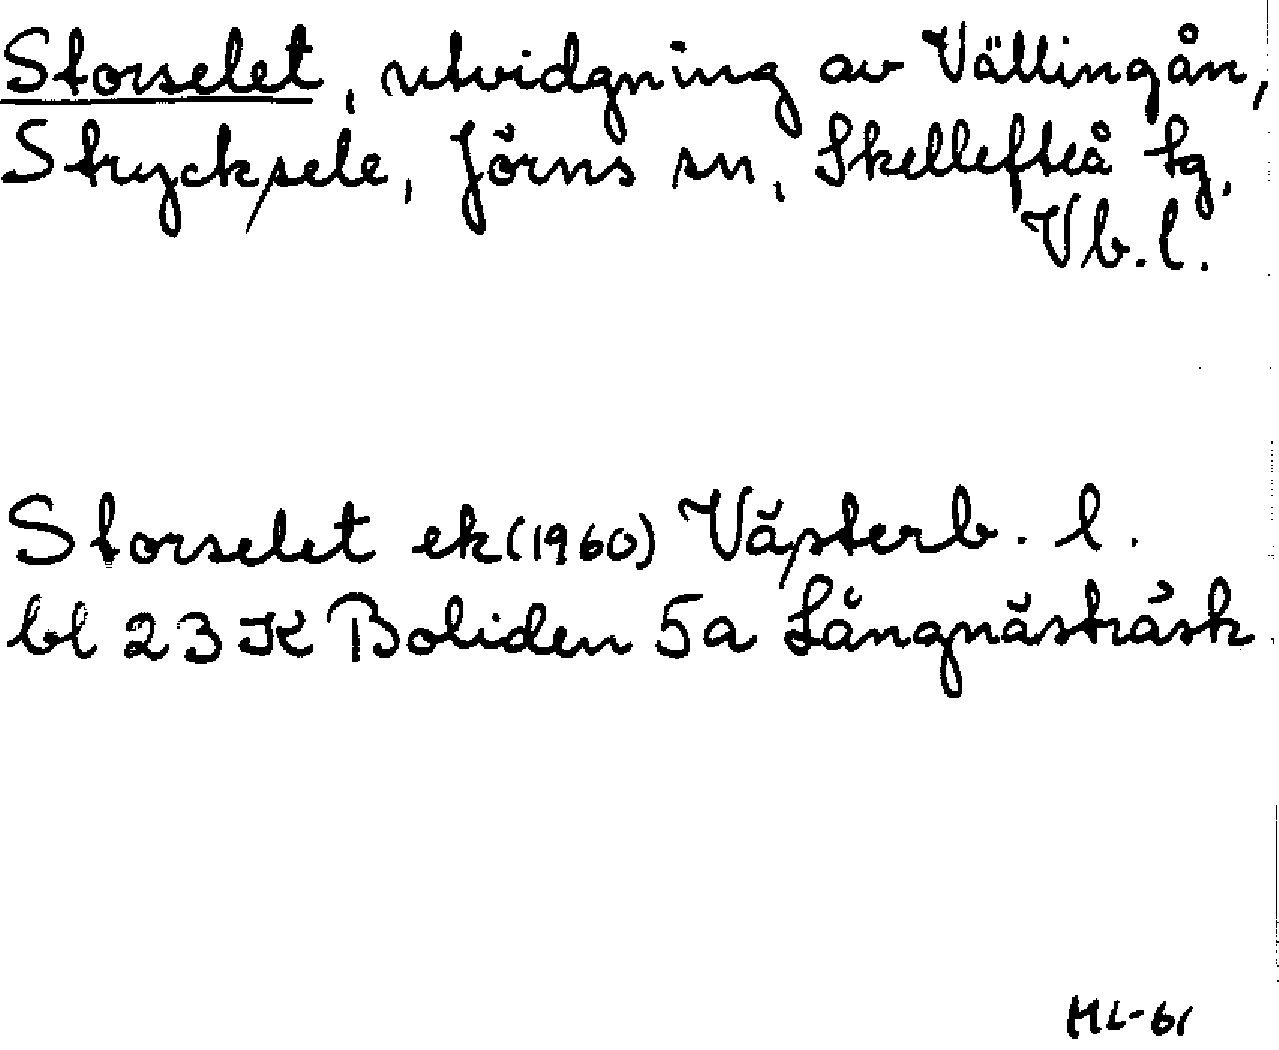 Storselet, utvidgning av Vällingån,
Strycksele, Jörns sn, Skellefteå tg,
Vb. l.
Storselet ek (1960) Västerb. l.
bl 23 K Boliden 5a Långnästräsk
HL-61